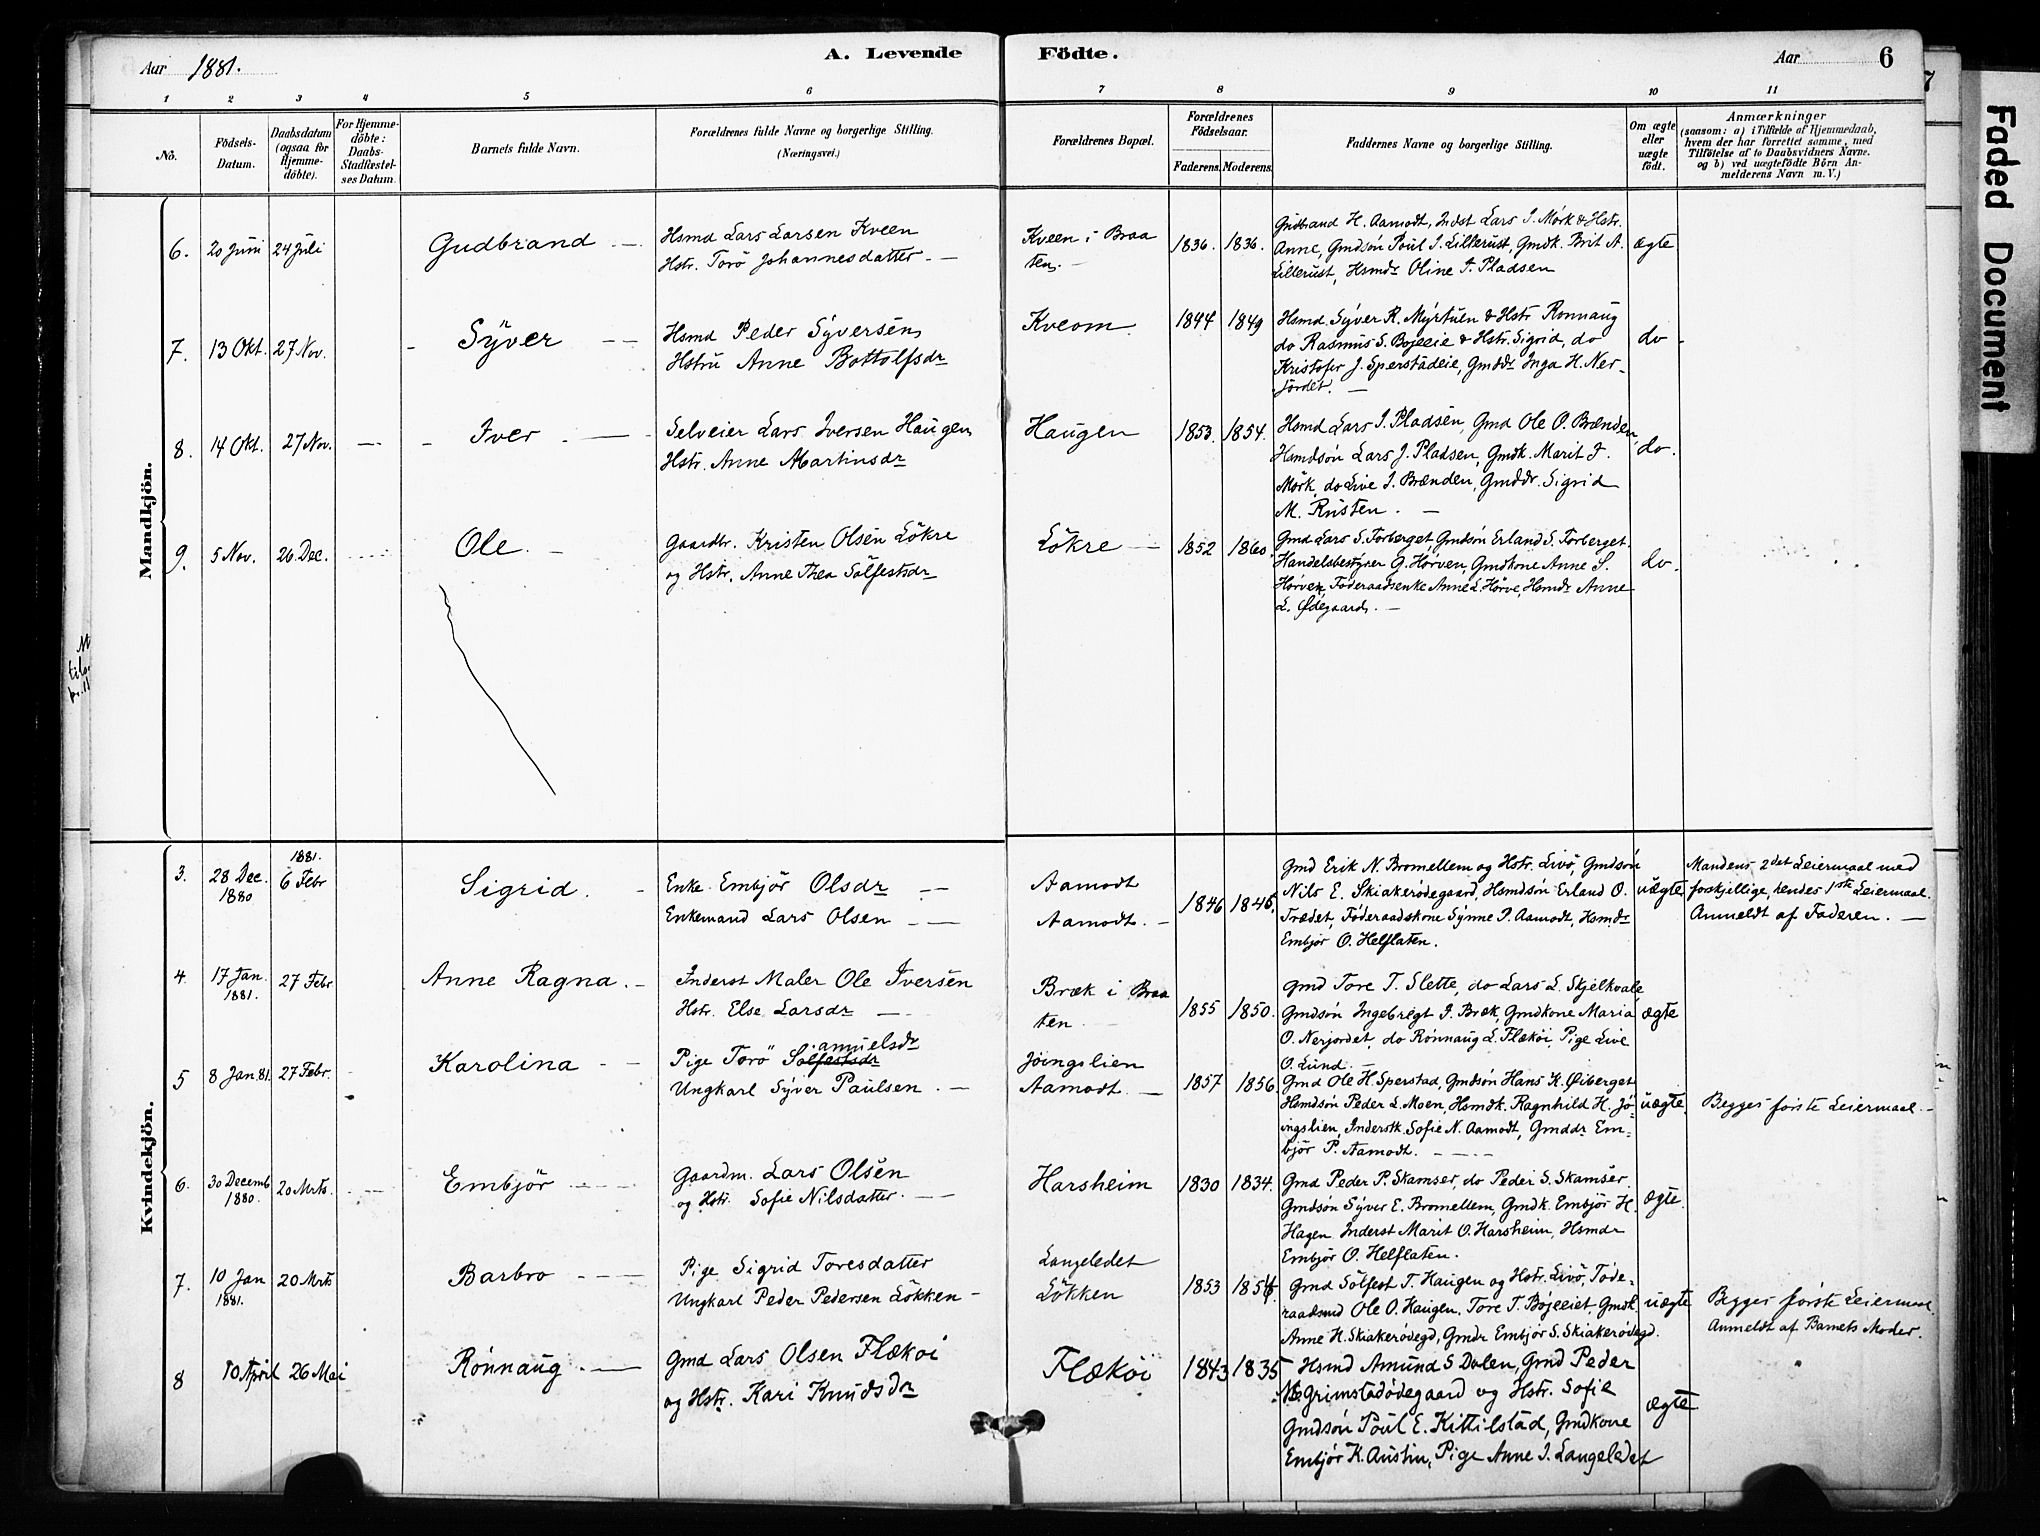 Aar 1881. A. Levende Födte. Aar 6
1 2 3 4 5 6 7 8 9 10 11
No.
Födsels-Datum.
Daabsdatum (ogsaa for Hjemme-döbte).
For Hjemme-döbte: Daabs-Stadfæstel-ses Datum.
Barnets fulde Navn.
Forældrenes fulde Navne og borgerlige Stilling. (Næringsvei.)
Forældrenes Bopæl.
Forældrenes Födselsaar.
Faderens. Moderens.
Faddernes Navne og borgerlige Stilling.
Om ægte eller uægte födt.
Anmærkninger
(saasom: a) i Tilfælde af Hjemmedaab,
hvem der har forrettet samme, med
Tilföielse af to Daabsvidners Navne.
og b) ved uægtefödte Börn An-
melderens Navn m. V.)
Mandkjön.
6. 20 Juni 24 Juli Gudbrand
Hsmd Lars Larsen Kveen
Hstr. Torö Johannesdatter.
Kveen i Braa
ten.
1836. 1836.
Gudbrand H. Aamodt, Indst Lars I. Mörk & Hstr.
Anne, Gmdsön Poul I. Lillerust, Gmdk. Brit A.
Lillerust, Hsmdr Oline T. Pladsen
ægte
7. 13 Okt. 27 Nov. Syver
Hsmd Peder Syversen
Hstru Anne Bottolfsdr
Kveom
1844 1849
Hsmd. Syver R. Myrtuen & Hstr Ronnaug
do Rasmus S. Bojeeie & Hstr. Sigrid, do
Kristofer J. Sperstadeie, Gmddr Inga H. Ner-
jordet.
do
8. 14 Okt. 27 Nov. Iver
Selveier Lars Iversen Haugen
Hstr. Anne Martinsdr
Haugen
1853. 1854.
Hsmd Lars I. Pladsen, Gmd Ole O. Brænden,
Hsmdsön Lars J. Pladsen, Gmdk. Marit J.
Mörk, do Live I. Brænden, Gmddr. Sigrid
M. Rusten.
do.
9. 5 Nov. 26 Dec. Ole.
Gaardbr. Kristen Olsen Lökre
og Hstr. Anne Thea Solfestsdr
Lökre
1852 1860.
Gmd Lars S. Forberget, Gmdsön Erland S. Forberget.
Handelsbestyrer G. Hörven, Gmdkone Anne S.
Hörven, Föderaadsenke Anne L. Hörve, Hsmdr Anne
L. Ødegaard.
do.
Kvindekjön.
3. 28 Dec. 1880 1881. 6 Febr Sigrid.
Enke. Embjör Olsdr
Enkemand Lars Olsen
Aamodt
Aamodt.
1846 1846.
Gmd Erik N. Bromellem og Hstr. Livö, Gmdsön
Nils E. Skiakerødegaard, Hsmdsön Erland O.
Trædet, Föderaadskone Synne P. Aamodt, Hsmdr
Embjør O. Helflaten.
uægte
Mandens 2det Leiermaal med
forskjellige, hendes 1ste Leiermaal.
Anmeldt af Faderen.
4. 17 Jan. 1881. 27 Febr Anne Ragna.
Inderst Maler Ole Iversen
Hstr. Else Larsdr
Bræk i Braa
ten
1855 1850.
Gmd Tore T. Slette, do Lars L. Skjelkvale
Gmdsön Ingebregt J. Bræk, Gmdkone Maria
O. Nerjordet, do Rönnaug L. Flækøi, Pige Live
O. Lund.
ægte
5 8 Jan. 81. 27 Febr. Karolina
Pige Torö Solfestsdr amuelsdr
Ungkarl Syver Paulsen.
Jöingslien
Aamodt.
1857 1856.
Gmd Ole H. Sperstad, Gmdsön Hans K. Øiberget
Hsmdsön Peder L. Moen, Hsmdk. Ragnhild H. Jö-
ingslien, Inderstk. Sofie N. Aamodt, Gmddr Em-
björ P. Aamodt.
uægte
Begges første Leiermaal.
6. 30 Decemb 1880. 20 Mrts. Embjör
Gaardm. Lars Olsen
og Hstr. Sofie Nilsdatter.
Harsheim
1830 1834.
Gmd Peder P. Skamser, do Peder S. Skamser.
Gmdsön Syver E. Bromellem, Gmdk. Embjör H.
Hagen Inderst Marit O. Harsheim, Hsmdr
Embjör O. Helflaten.
ægte.
7. 10 Jan 1881. 20 Mrts Barbro
Pige Sigrid Toresdatter
Ungkarl Peder Pedersen Lökken
Langeledet
Lökken
1853 1854.
Gmd Sölfest T. Haugen og Hstr. Livö, Föde-
raadsmd Ole O. Haugen, Tore T. Böjeeiet, Gmdk.
Anne H. Skiakerödegd, Gmdr Embjör S. Skiakerödegd.
uægte
Begges første Leiermaal.
Anmeldt af Barnets Moder.
8 10 April 26 Mai Rönnaug
Gmd Lars Olsen Flækøi
og Hstr. Kari Knudsdr
Flækøi
1843 1835
Hsmd Amund S Dalen, Gmd Peder
N. Grimstadödegaard og Hstr. Sofie
Gmdsön Poul E. Kittilstad, Gmdkone
Embjør K. Austin, Pige Anne I. Langeledet
ægte
Faded Document